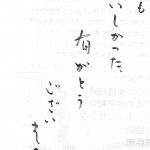 も
いしかった、
有がとう
ござい
ま